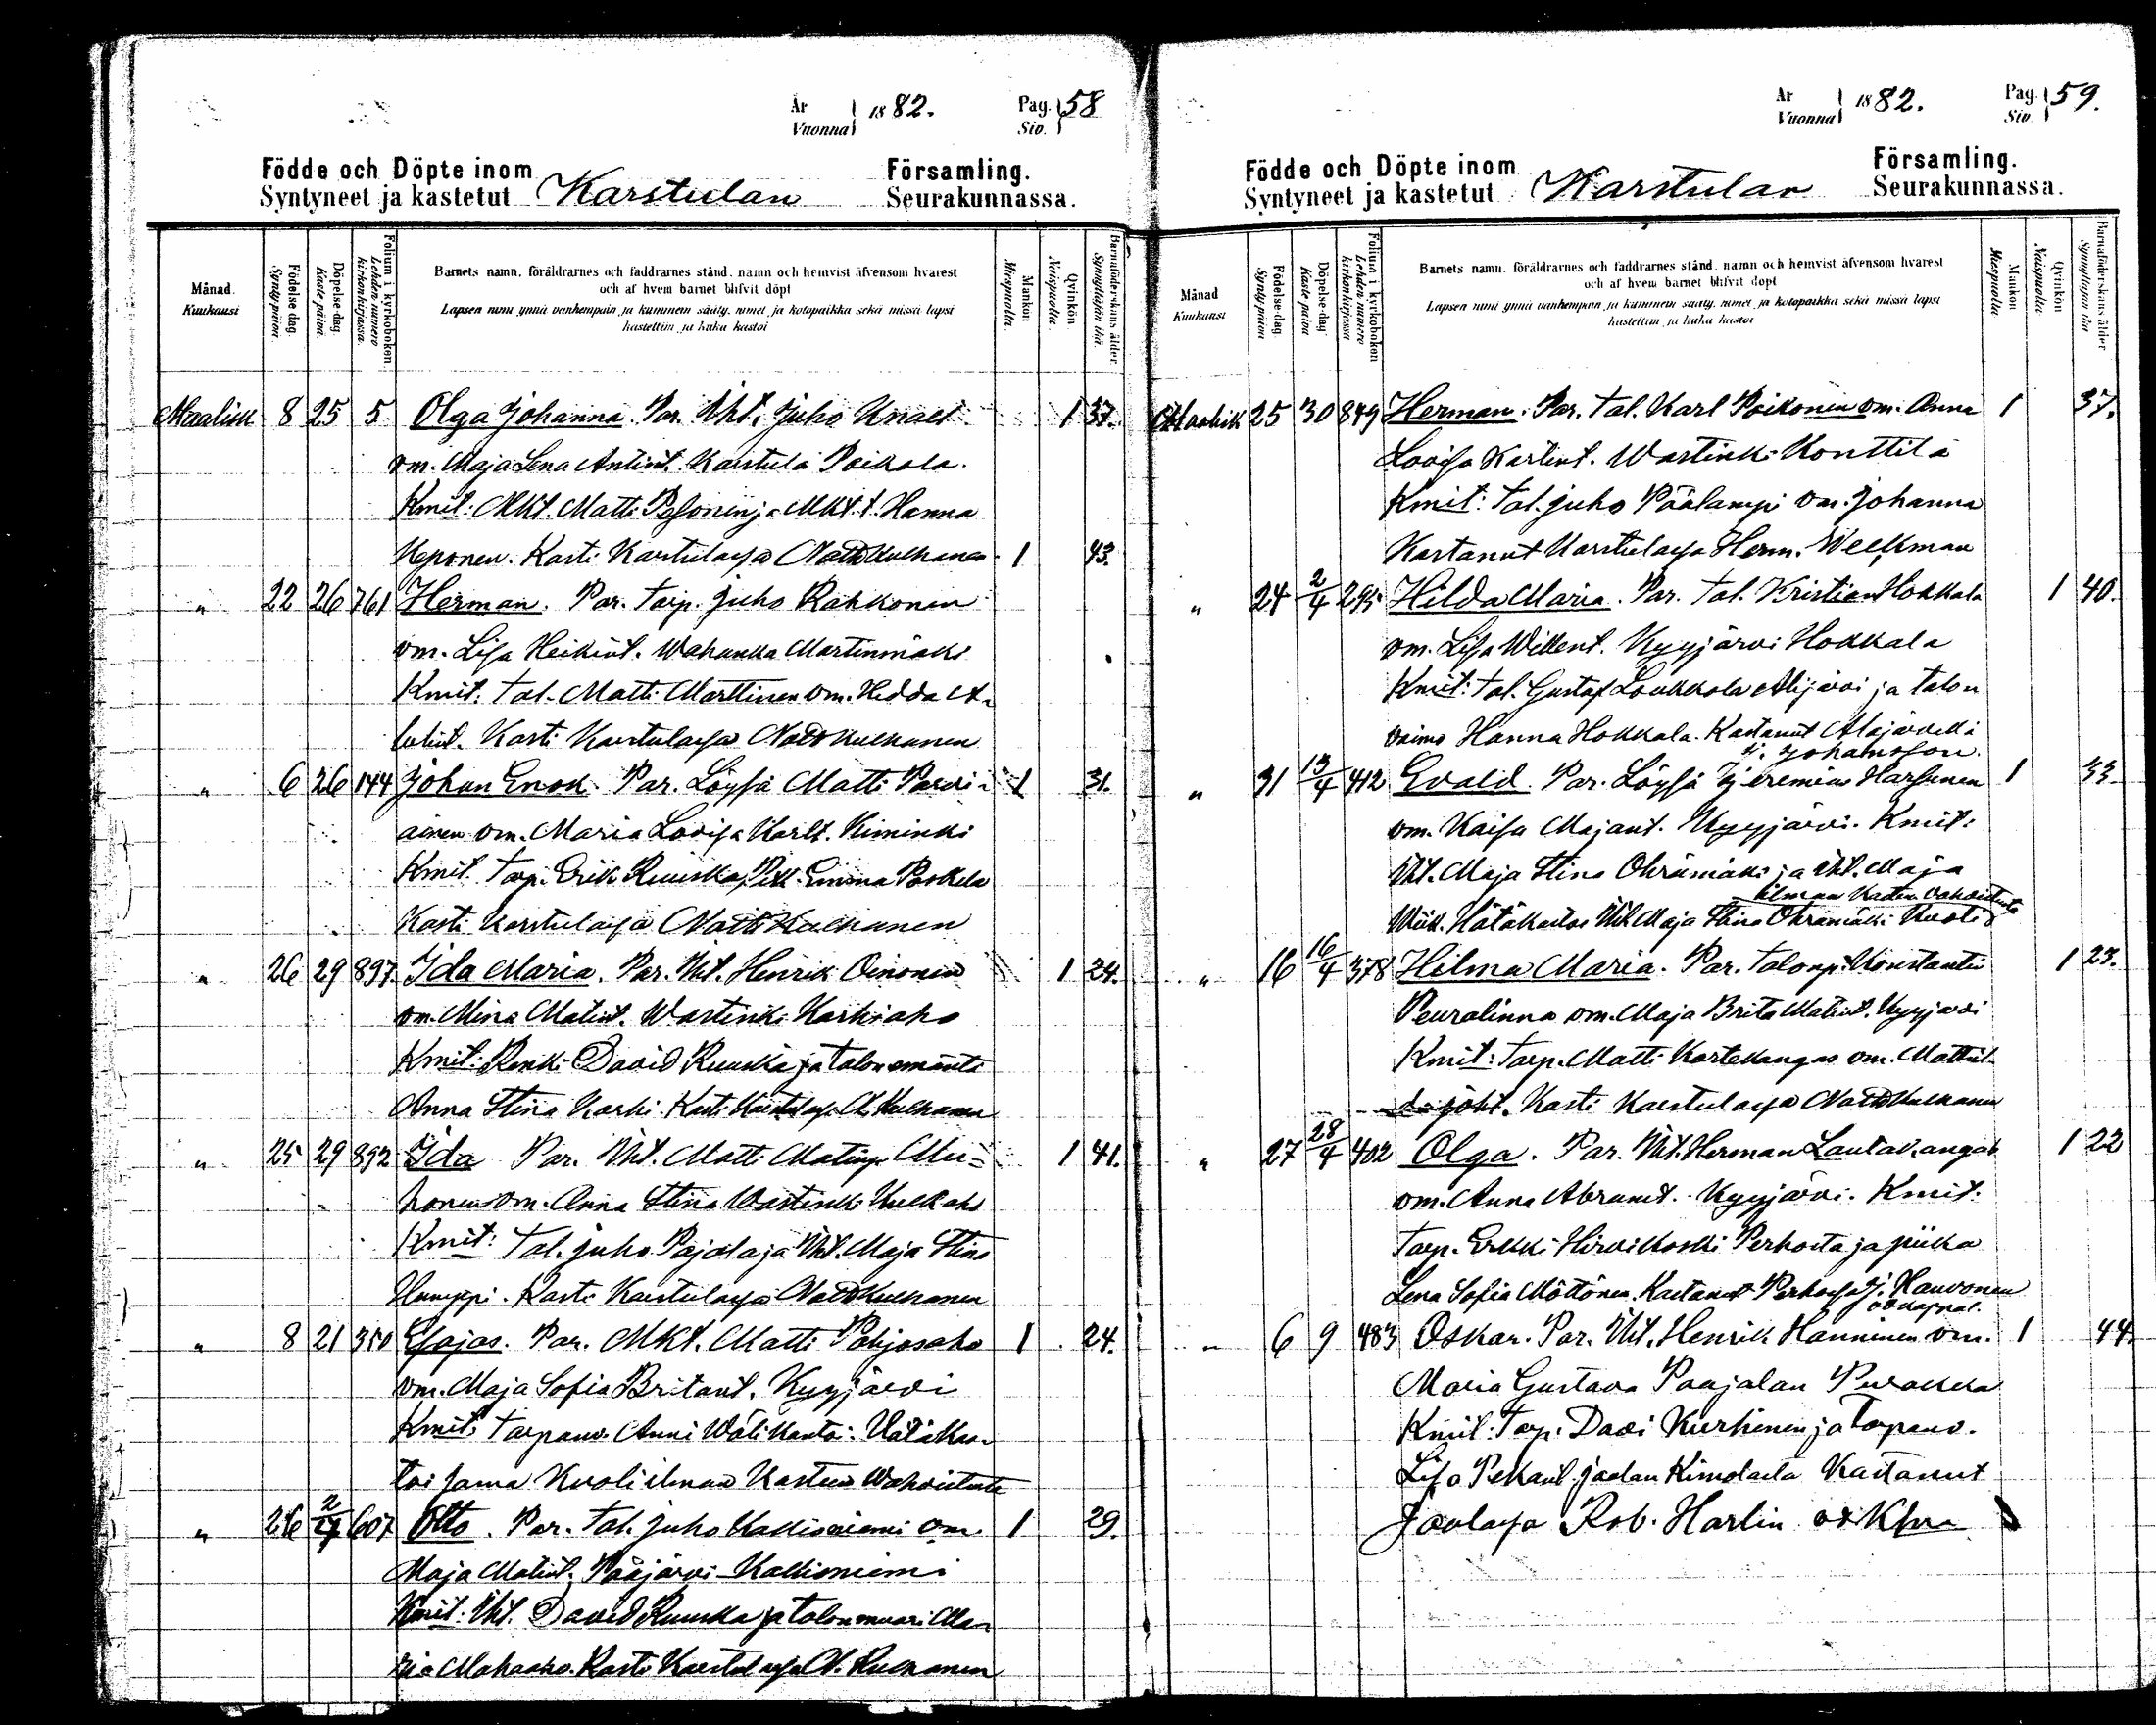 År
Vuonna
1882.
Pag.
Siv.
58
Födde och Döpte inom
Syntyneet ja kastetut
Karstulan
Församling.
Seurakunnassa.
Månad.
Kuukausi
Födelse dag.
Syntypäivä.
Döpelse-dag
Kaste päivä.
Folium i kyrkoboken.
Lehden numero kirkonkirjassa.
Barnets namn, föräldrarnes och faddrarnes stånd, namn och hemvist äfvensom hvarest
och af hvem barnet blifvit döpt
Lapsen nimi ynnä vanhempain ja kummein sääty, nimet ja kotopaikka sekä missä lapsi
kastettiin ja kuka kastoi
Mankön
Miespuolta.
Qvinkön
Naispuolta.
Barnaföderskans ålder
Synnyttäjän ikä.
Maalisk 8 25 5 Olga Johanna. Par. Iht. Juho 1 37.
vm. Maja Lena Antint. Karstula Poikola.
Kmit: Mkt. Matti Pesonen ja Mkt. t. Hanna
Keponen. Kasti Karstulassa Kulhanen 1 43.
" 22 26 761 Herman. Par. Torp. Juho Rahkonen
vm. Lisa Heikint. Wahanka Martinmäki
Kmit: tal. Matti Marttinen vm. Hedda
Kasti Karstulassa Kulhanen
" 6 26 144 Johan Enok. Par. Löysä Matti Parvi- 1 31.
ainen vm. Maria Lovisa Karlt. Kiminki
Kmit. Torp. Erik Ruuska, Emma
Kasti Karstulassa Kulhanen
" 26 29 897 Ida Maria. Par. Iht. Henrik Oinonen 1 24.
vm. Mina Matint. Wastinki Karhiaho
Kmit: Renki David Ruuska ja talon emäntä
Anna Stina Karhi. Kasti Karstulassa Kulhanen
" 25 29 892 Ida Par. Iht. Matti Matinp. Mu= 1 41.
honen vm. Anna Stina Wastinki
Kmit: Tal. Juho Pajala ja Iht. Maja Stina
Humppi. Kasti Karstulassa Kulhanen
" 8 21 350 Esajas. Par. Mkt. Matti Pohjosaho 1 24.
vm. Maja Sofia Britant. Kyyjärvi
Kmit: Torpanv. Anni Hätäkas-
toi sama Kuoli ilman Kasteen Wahvistusta
" 26 2/4 607 Otto. Par. Tal. Juho Kallioniemi vm. 1 29.
Maja Matint. Pääjärvi Kallioniemi
Kmit: Iht. David Ruuska ja talonmuori Ma-
ria Mahaaho. Kasti Karstulassa Kulhanen
År
Vuonna
1882.
Pag.
Siv.
59.
Födde och Döpte inom
Syntyneet ja kastetut
Karstulan
Församling.
Seurakunnassa.
Månad
Kuukausi
Födelse dag.
Syntypäivä
Döpelse-dag
Kaste päivä
Folium i kyrkoboken
Lehden numero kirkonkirjassa
Barnets namn, föräldrarnes och faddrarnes stånd, namn och hemvist äfvensom hvarest
och af hvem barnet blifvit döpt
Lapsen nimi ynnä vanhempain ja kummein sääty, nimet ja kotopaikka sekä missä lapsi
kastettiin ja kuka kastoi
Mankön
Miespuolta
Qvinkön
Naispuolta.
Barnaföderskans ålder
Synnyttäjän ikä
Maalisk 25 30 849 Herman. Par. Tal. Karl Poikonen vm. Anna 1 37.
Lovisa Karlint. Wastinki Konttila
Kmit: Tal. Juho Päälampi vm. Johanna
Kastanut Karstulassa Herm. Weckman
" 24 2/4 295 Hilda Maria. Par. Tal. Kristian Hokkala 1 40.
vm. Lisa Willent. Kyyjärvi Hokkala
Kmit: Tal. Gustaf Loukkola Alijärvi ja talon
vaimo Hanna Hokkala. Kastanut Alajärvellä
J. Johansson.
" 31 13/4 412 Evald. Par. Löysä Jeremias Harjunen 1 33.
vm. Kaisa Majant. Kyyjärvi. Kmit:
Iht. Maja Stina Ohramäki ja Iht. Maja
ilman Kasteen vahvistusta
Hätäkastoi Iht. Maja Stina Ohramäki Kuoli
" 16 16/4 378 Hilma Maria. Par. talonp. Konstantin 1 23.
Peuralinna vm. Maja Brita Matint. Kyyjärvi
Kmit: Torp. Matti Kortekangas vm. Mathil-
da Joht. Kasti Karstulassa Kulhanen
" 27 28/4 402 Olga. Par. Iht. Herman Lautakangas 1 22
vm. Anna Abramt. Kyyjärvi. Kmit.
Torp. Erkki Hirvikoski Perhosta ja piika
Lena Sofia Möttönen. Kastanut Perhossa J. Hauvonen
vvkapnal.
" 6 9 483 Oskar. Par. Iht. Henrik Hanninen vm. 1 44.
Maria Gustava Paajalan Purakka
Kmit: Torp. Davi Kurhinen ja torpanv.
Lisa Pekant. Kimolasta Kastanut
Rob. Harlin